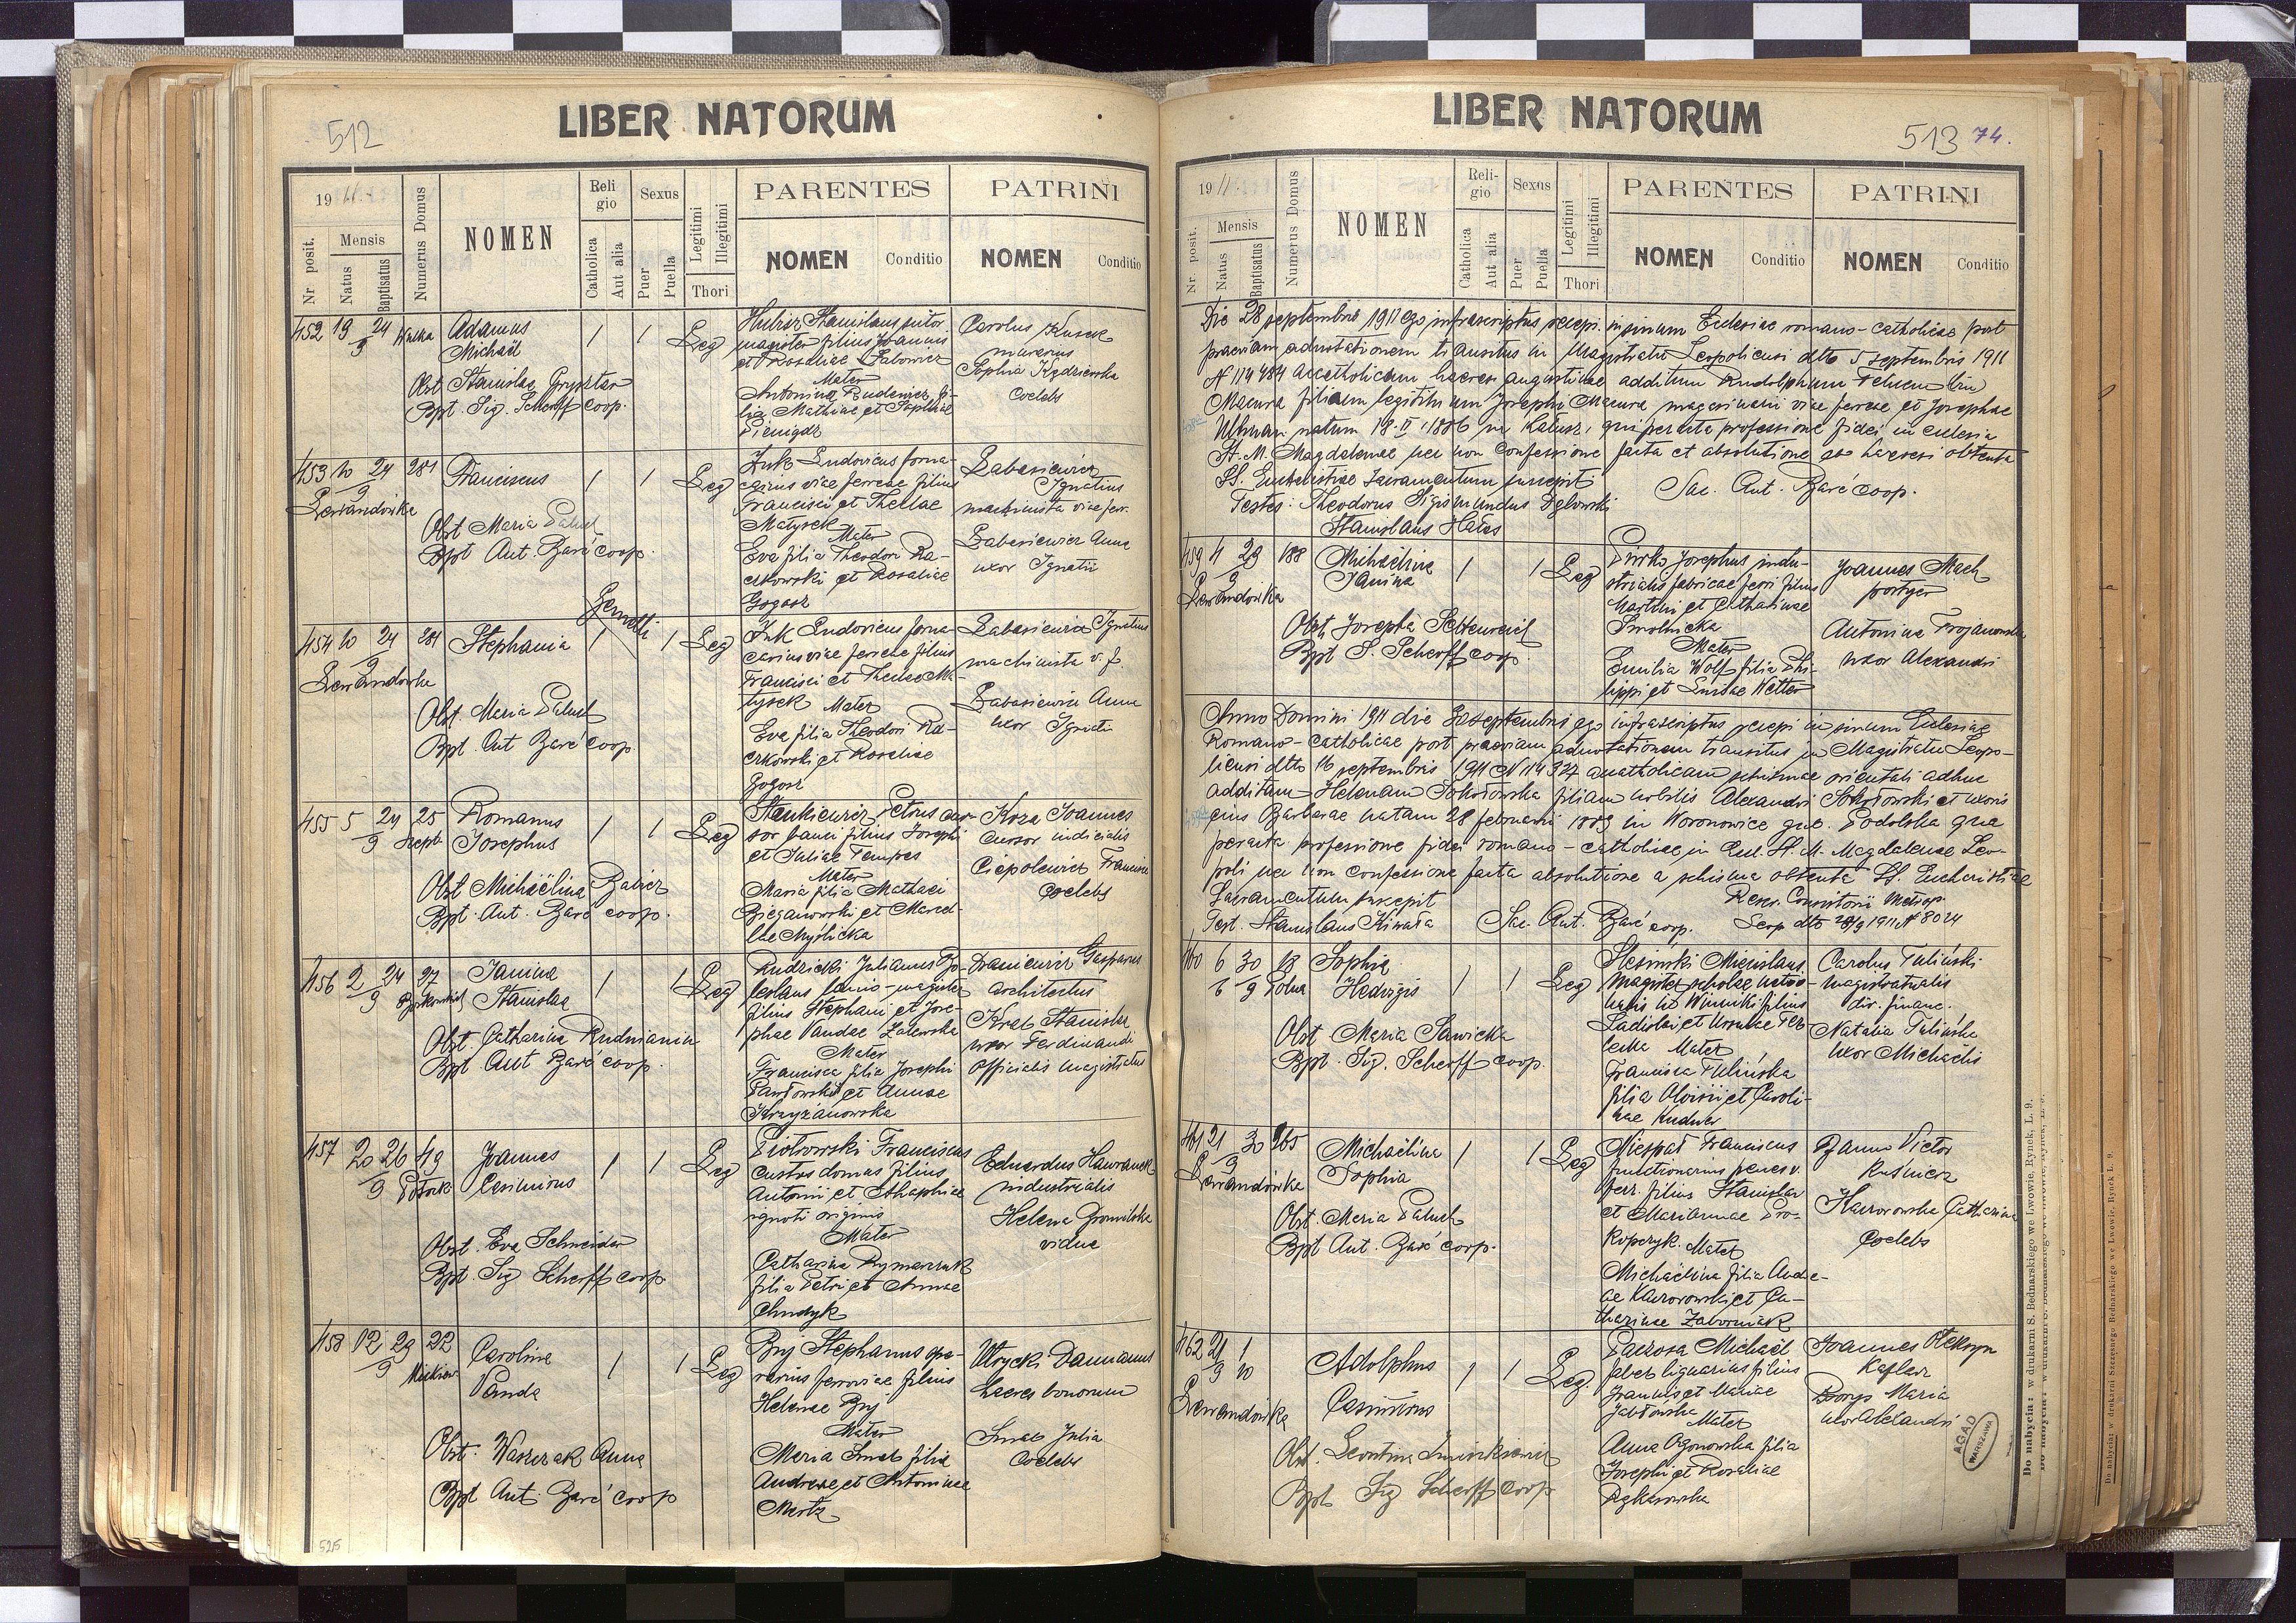 512
LIBER NATORUM
1911
Nr posit.
Mensis
Natus
Baptisatus
Numerus Domus
NOMEN
Religio
Catholica
Aut alia
Sexus
Puer
Puella
Legitimi
Illegitimi
Thori
PARENTES
NOMEN Conditio
PATRINI
NOMEN Conditio
452 19 24 9
Adamus
Michaël
Obst Stanislaa
Bpt. Sig. Scherff coop.
1 1 Leg
Stanislaus sutor
magister filius Joannis
et Rosaliae
Mater
Antonina fi-
lia Mathiae et Sophiae
Pieniądz
Carolus
murarius
Sophia Kędzierska
Coelebs
453 10 24 9 281
Lewandówka
Franciscus
Obst Maria
Bpt Ant. Baré coop.
1 1 Leg
Żuk Ludovicus forna-
carius viae ferreae filius
Francisci et Theclae
Matysek
Mater
Eva filia Theodori Ra-
czkowski et Rosaliae
Gogosz
Ignatius
machinista viae ferr.
Anna
uxor Ignatii
Gemelli
454 10 24 9 281
Lewandówka
Stephania
Obst. Maria
Bpt. Ant Baré coop
1 1 Leg
Żuk Ludovicus forna-
carius viae ferreae filius
Francisci et Theclae Ma-
tysek Mater
Eva filia Theodori Ra-
czkowski et Rosaliae
Gogosz
Ignatius
machinista v. f.
Anna
uxor Ignatii
455 5 24 9 25
Romanus
Josephus
Obst Michaëlina Babicz
Bpt. Ant. Baré coop.
1 1 Leg
Stankiewicz Petrus cur-
sor banci filius Josephi
et Juliae Tempes
Mater
Maria filia Mathaei
Bieganowski et Marcel-
lae Myślicka
Koza Joannes
cursor iudicialis
Coelebs
456 2 24 9 27
Janina
Stanislaa
Obst. Catharina
Bpt. Ant Baré coop.
1 1 Leg
Rudzicki Julianus Bo-
leslaus magister
filius Stephani et Jose-
phae Vandae Zalewska
Mater
Francisca filia Josephi
Pawłowski et Annae
Krzyżanowska
Gasparus
architectus
Kral Stanislaa
uxor Ferdinandi
officialis magistratus
457 20 26 9 49
Potock
Joannes
Casimirus
Obst. Eva Schneider
Bpt. Sig Scherff coop
1 1 Leg
Piotrowski Franciscus
custos domus filius
Antonii et Agaphiae
ignoti originis
Mater
Catharina Rymarczuk
filia Petri et Annae
Chudyk
Eduardus Hawranek
industrialis
Helena
vidua
458 12 29 9 22
Mickiew
Carolina
Vanda
Obst. Waszczak Anna
Bpt Ant. Baré coop
1 1 Leg
Bryj Stephanus ope-
rarius ferroviae filius
Helenae Bryj
Mater
Maria Smal filia
Andreae et Antoninae
Damianus
haeres bonorum
Smal Julia
Coelebs
525
LIBER NATORUM
513 74.
1911
Nr posit.
Mensis
Natus
Baptisatus
Numerus Domus
NOMEN
Religio
Catholica
Aut alia
Sexus
Puer
Puella
Legitimi
Illegitimi
Thori
PARENTES
NOMEN Conditio
PATRINI
NOMEN Conditio
Die 28 septembris 1911 ego infrascriptus recepi in sinum Ecclesiae romano-catholicae post
praeviam adnotationem transitus in Magistratu Leopoliensi dtto 5 septembris 1911
N 114484 acatholicum haeresi augustinae additum Rudolphum
Macura filium legitimum Josephi Macura magasinarii viae ferreae et Josephae
Ullman natum 18 1886 in Kałusz, qui peracta professione fidei in ecclesia
St. M. Magdalenae nec non confessione facta et absolutione ab haeresi obtenta
SS. Eucharistiae Sacramentum suscepit Sac. Ant. Baré coop.
Testes: Theodorus Sigismundus
Stanislaus Hałas
459 4 29 9 188
Lewandówka
Michaëlina
Janina
Obst. Josepha
Bpt S. Scherff coop.
1 1 Leg
Josephus indu-
strialis fabricae ferri filius
Martini et Catharinae
Smolnicka
Mater
Emilia Wolf filia Phi-
lippi et
Joannes Mach
portyer
Antonina Trojanowska
uxor Alexandri
Anno Domini 1911 die septembris ego infrascriptus recepi in sinum Ecclesiae
Romano-catholicae post praeviam adnotationem transitus in Magistratu Leopo-
liensi dtto 16 septembris 1911 N 114327 acatholicam schismae orientali adhuc
additam Helenam Sokołowska filiam nobilis Alexandri Sokołowski et uxoris
eius Barbarae natam 28 februarii in Woronowice gub. Podolska qua
peracta professione fidei romano-catholicae in Eccl. St. M. Magdalenae Leo-
poli nec non confessione facta absolutione a schisma obtenta SS. Eucharistiae
Sacramentum suscepit Rescr. Consistorii Metrop.
Test. Stanislaus Kiwała Sac. Ant. Baré coop. Leop dtto 1911 N 8024
460 6 30 6 9 18
Polna
Sophia
Hedvigis
Obst. Maria Sawicka
Bpt. Sig. Scherff coop.
1 1 Leg
Slesinski Miecislaus
Magister scholae
in Winniki filius
Ladislai et
Mater
Francisca Tulińska
filia Aloisii et Caroli-
nae
Carolus Tuliński
magistratualis
dir. financ.
Natalia Tulińska
uxor Michaëlis
461 21 30 9 265
Lewandówka
Michaëlina
Sophia
Obst. Maria
Bpt Ant. Baré coop.
1 1 Leg
Niespał Franciscus
functionarius penes v.
ferr. filius Stanislai
et Mariannae Pro-
kopczyk. Mater
Michaëlina filia Andre-
ae Kaczorowski et Ca-
tharinae Zaborniak
Victor
Kuśnierz
Kaczorowska Catharina
Coelebs
462 21 1 9 10
Lewandówka
Adolphus
Casimirus
Obst. Leontina
Bpt Sig Scherff coop
1 1 Leg.
Michaël
faber lignarius filius
Francis et Mariae
Jabłońska Mater
Anna Ogonowska filia
Josephi et Rosaliae
Joannes
Kaflarz
Borys Maria
uxor Alexandri
AGAD
WARSZAWA
Do nabycia: w drukarni S. Bednarskiego we Lwowie, Rynek, L. 9.
Do nabycia: w drukarni Szczęsnego Bednarskiego we Lwowie, Rynek L. 9.